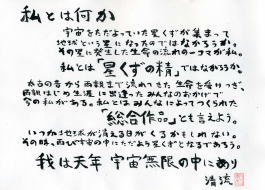 私とは何か
宇宙をただよっていた星くずが集まって
地球という星になったのではなかろうか。
その星に発生した生命の流れの一コマが私。
私とは「星くずの精」ではなかろうか。
太古の昔から両親まで流れてきた生命を受けつぎ、
両親はじめ生涯に出逢ったみんなのおかげで
今の私がある。私とはみんなによってつくられた
「総合作品」とも言えよう。
いつかは地球が消える日がくるかもしれない。
その時、再び宇宙の中にただよう星くずとなるであろう。
我は天年 宇宙無限の中にあり
清流